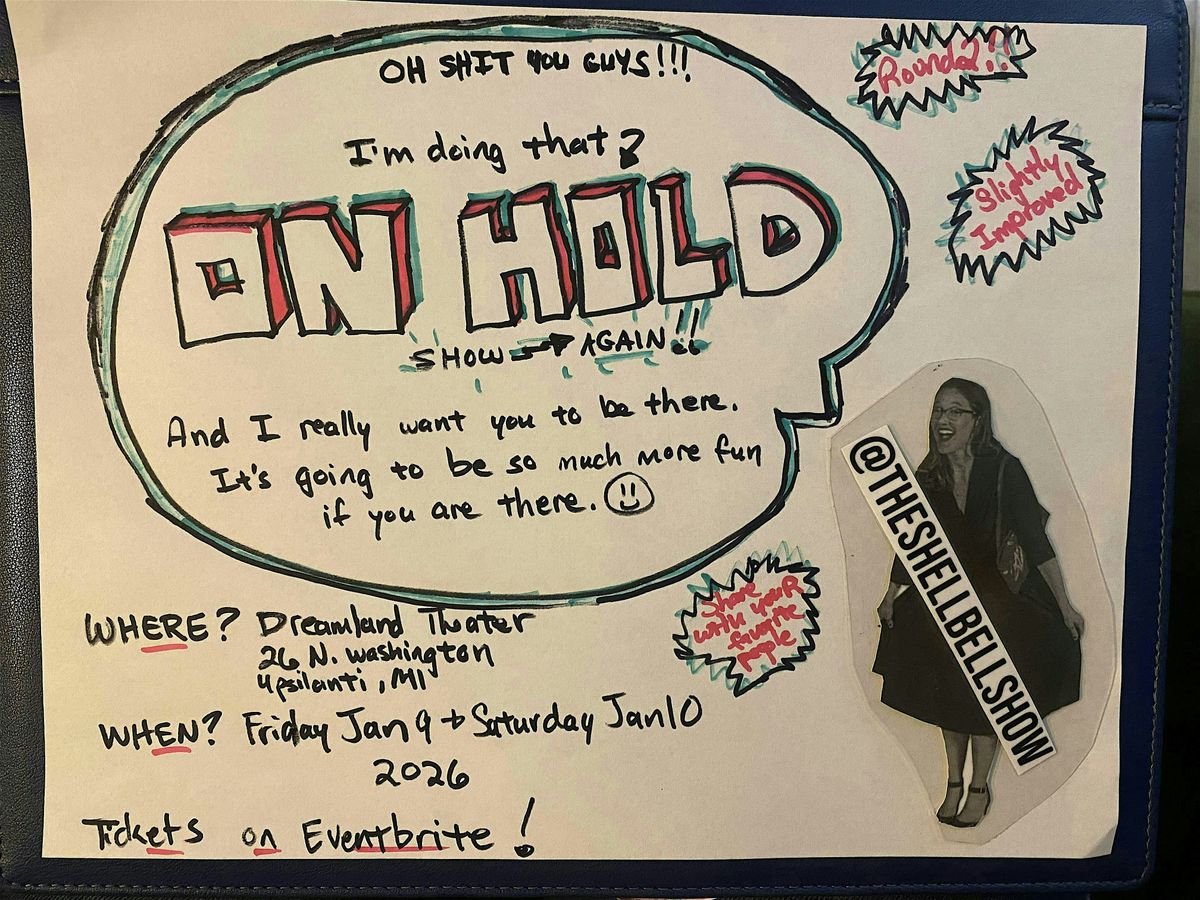 OH SHIT YOU GUYS!!!
I'm doing that?
ON HOLD
SHOW AGAIN!!
And I really want you to be there.
It's going to be so much more fun
if you are there.
Round 2!!
Slightly
Improved
@THESHELLBELLSHOW
Share
with your
favorite
people
WHERE? Dreamland Thwater
26 N. Washington
Ypsilanti, MI
WHEN? Friday Jan 9 + Saturday Jan 10
2026
Tickets on Eventbrite!